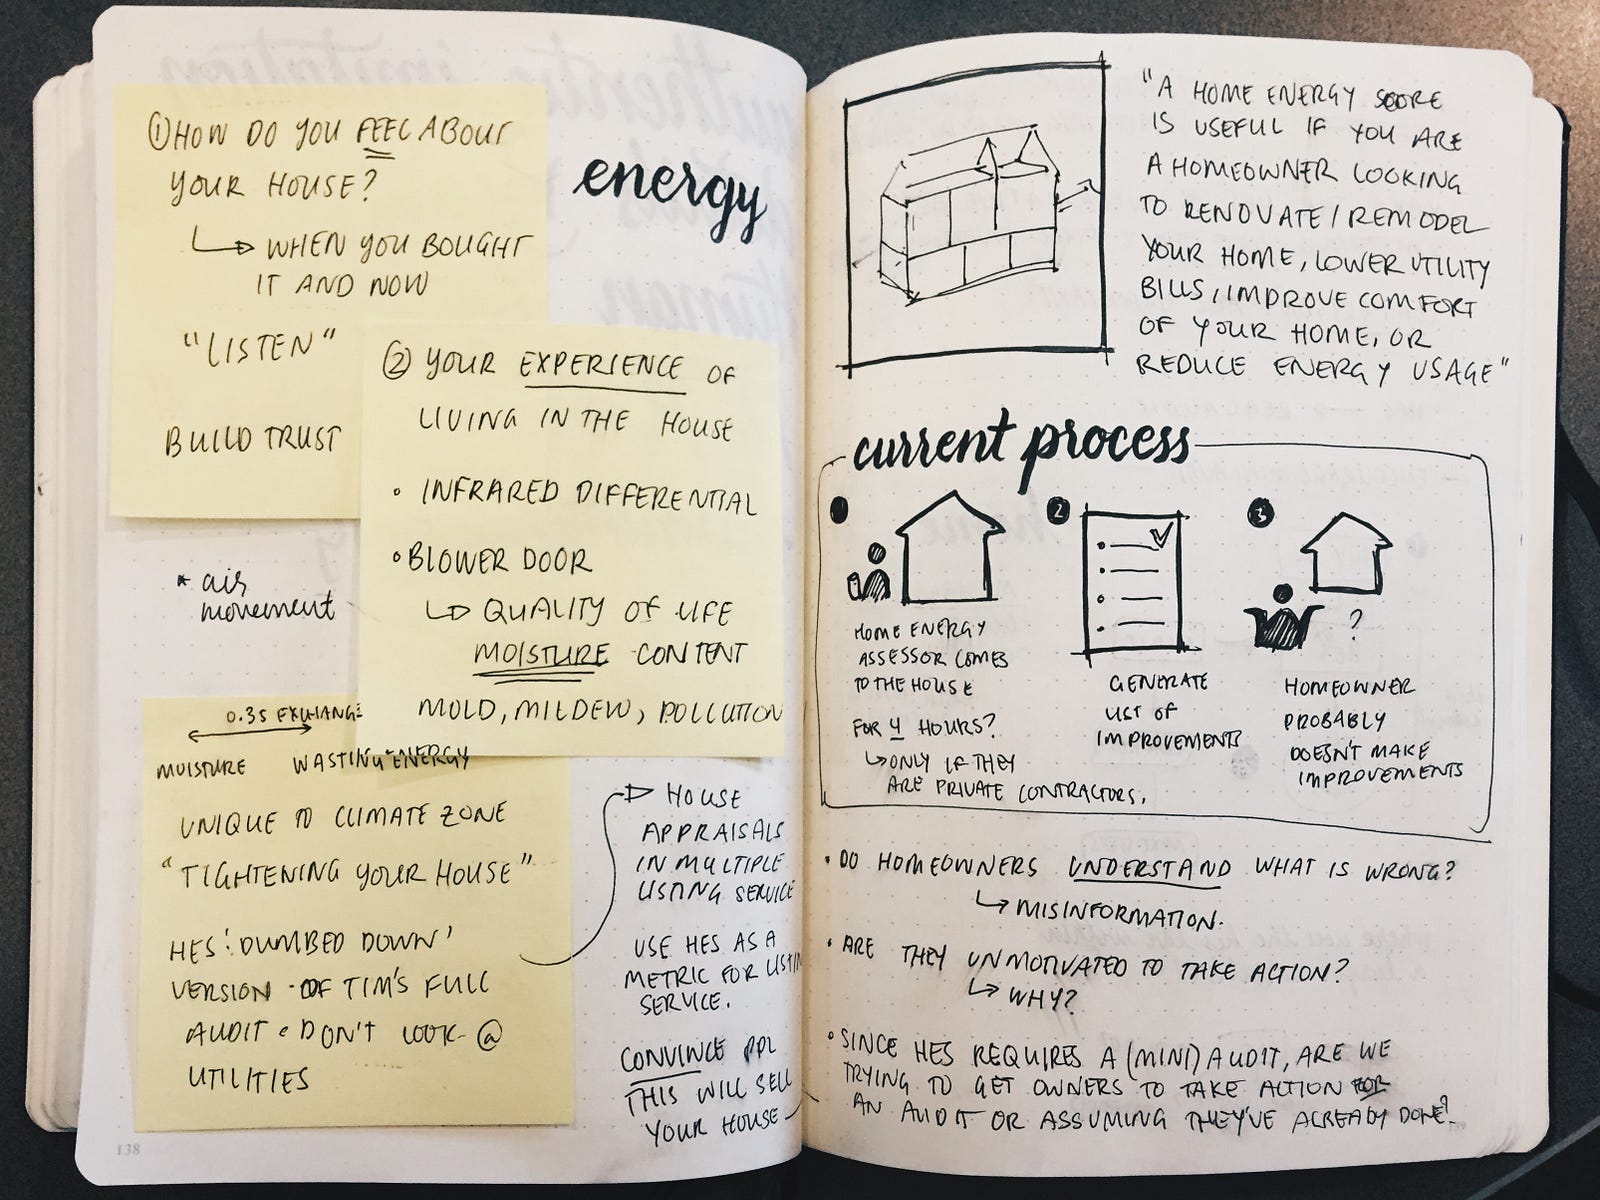 ① HOW DO YOU FEEL ABOUT
YOUR HOUSE?
↳ WHEN YOU BOUGHT
IT AND NOW
"LISTEN"
BUILD TRUST
energy
② YOUR EXPERIENCE OF
LIVING IN THE HOUSE
• INFRARED DIFFERENTIAL
• BLOWER DOOR
↳ QUALITY OF LIFE
MOISTURE CONTENT
MOLD, MILDEW, POLLUTION
* air
movement
0.35 EXCHANGE
MOISTURE WASTING ENERGY
UNIQUE TO CLIMATE ZONE
"TIGHTENING YOUR HOUSE"
HES: 'DUMBED DOWN'
VERSION OF TIM'S FULL
AUDIT • DON'T LOOK @
UTILITIES
→ HOUSE
APPRAISALS
IN MULTIPLE
LISTING SERVICE
USE HES AS A
METRIC FOR LISTIN
SERVICE.
CONVINCE PPL
THIS WILL SELL
YOUR HOUSE
138
"A HOME ENERGY SCORE
IS USEFUL IF YOU ARE
A HOMEOWNER LOOKING
TO RENOVATE/REMODEL
YOUR HOME, LOWER UTILITY
BILLS, IMPROVE COMFORT
OF YOUR HOME, OR
REDUCE ENERGY USAGE"
current process
1
HOME ENERGY
ASSESSOR COMES
TO THE HOUSE
FOR 4 HOURS?
↳ ONLY IF THEY
ARE PRIVATE CONTRACTORS.
2
GENERATE
LIST OF
IMPROVEMENTS
3
?
HOMEOWNER
PROBABLY
DOESN'T MAKE
IMPROVEMENTS
• DO HOMEOWNERS UNDERSTAND WHAT IS WRONG?
↳ MISINFORMATION.
• ARE THEY UNMOTIVATED TO TAKE ACTION?
↳ WHY?
• SINCE HES REQUIRES A (MINI) AUDIT, ARE WE
TRYING TO GET OWNERS TO TAKE ACTION FOR
AN AUDIT OR ASSUMING THEY'VE ALREADY DONE?